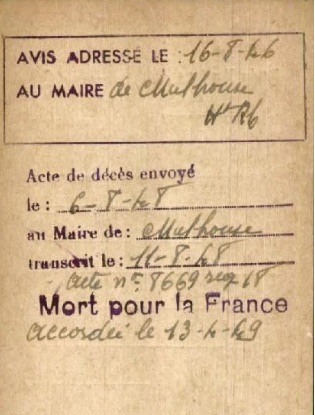 AVIS ADRESSÉ LE : 16-8-46
AU MAIRE de Mulhouse
Ht Rh
Acte de décès envoyé
le : 6-8-48
au Maire de : Mulhouse
transcrit le : 11-8-48
acte n° 8669 reg 18
Mort pour la France
accordée le 13-4-49